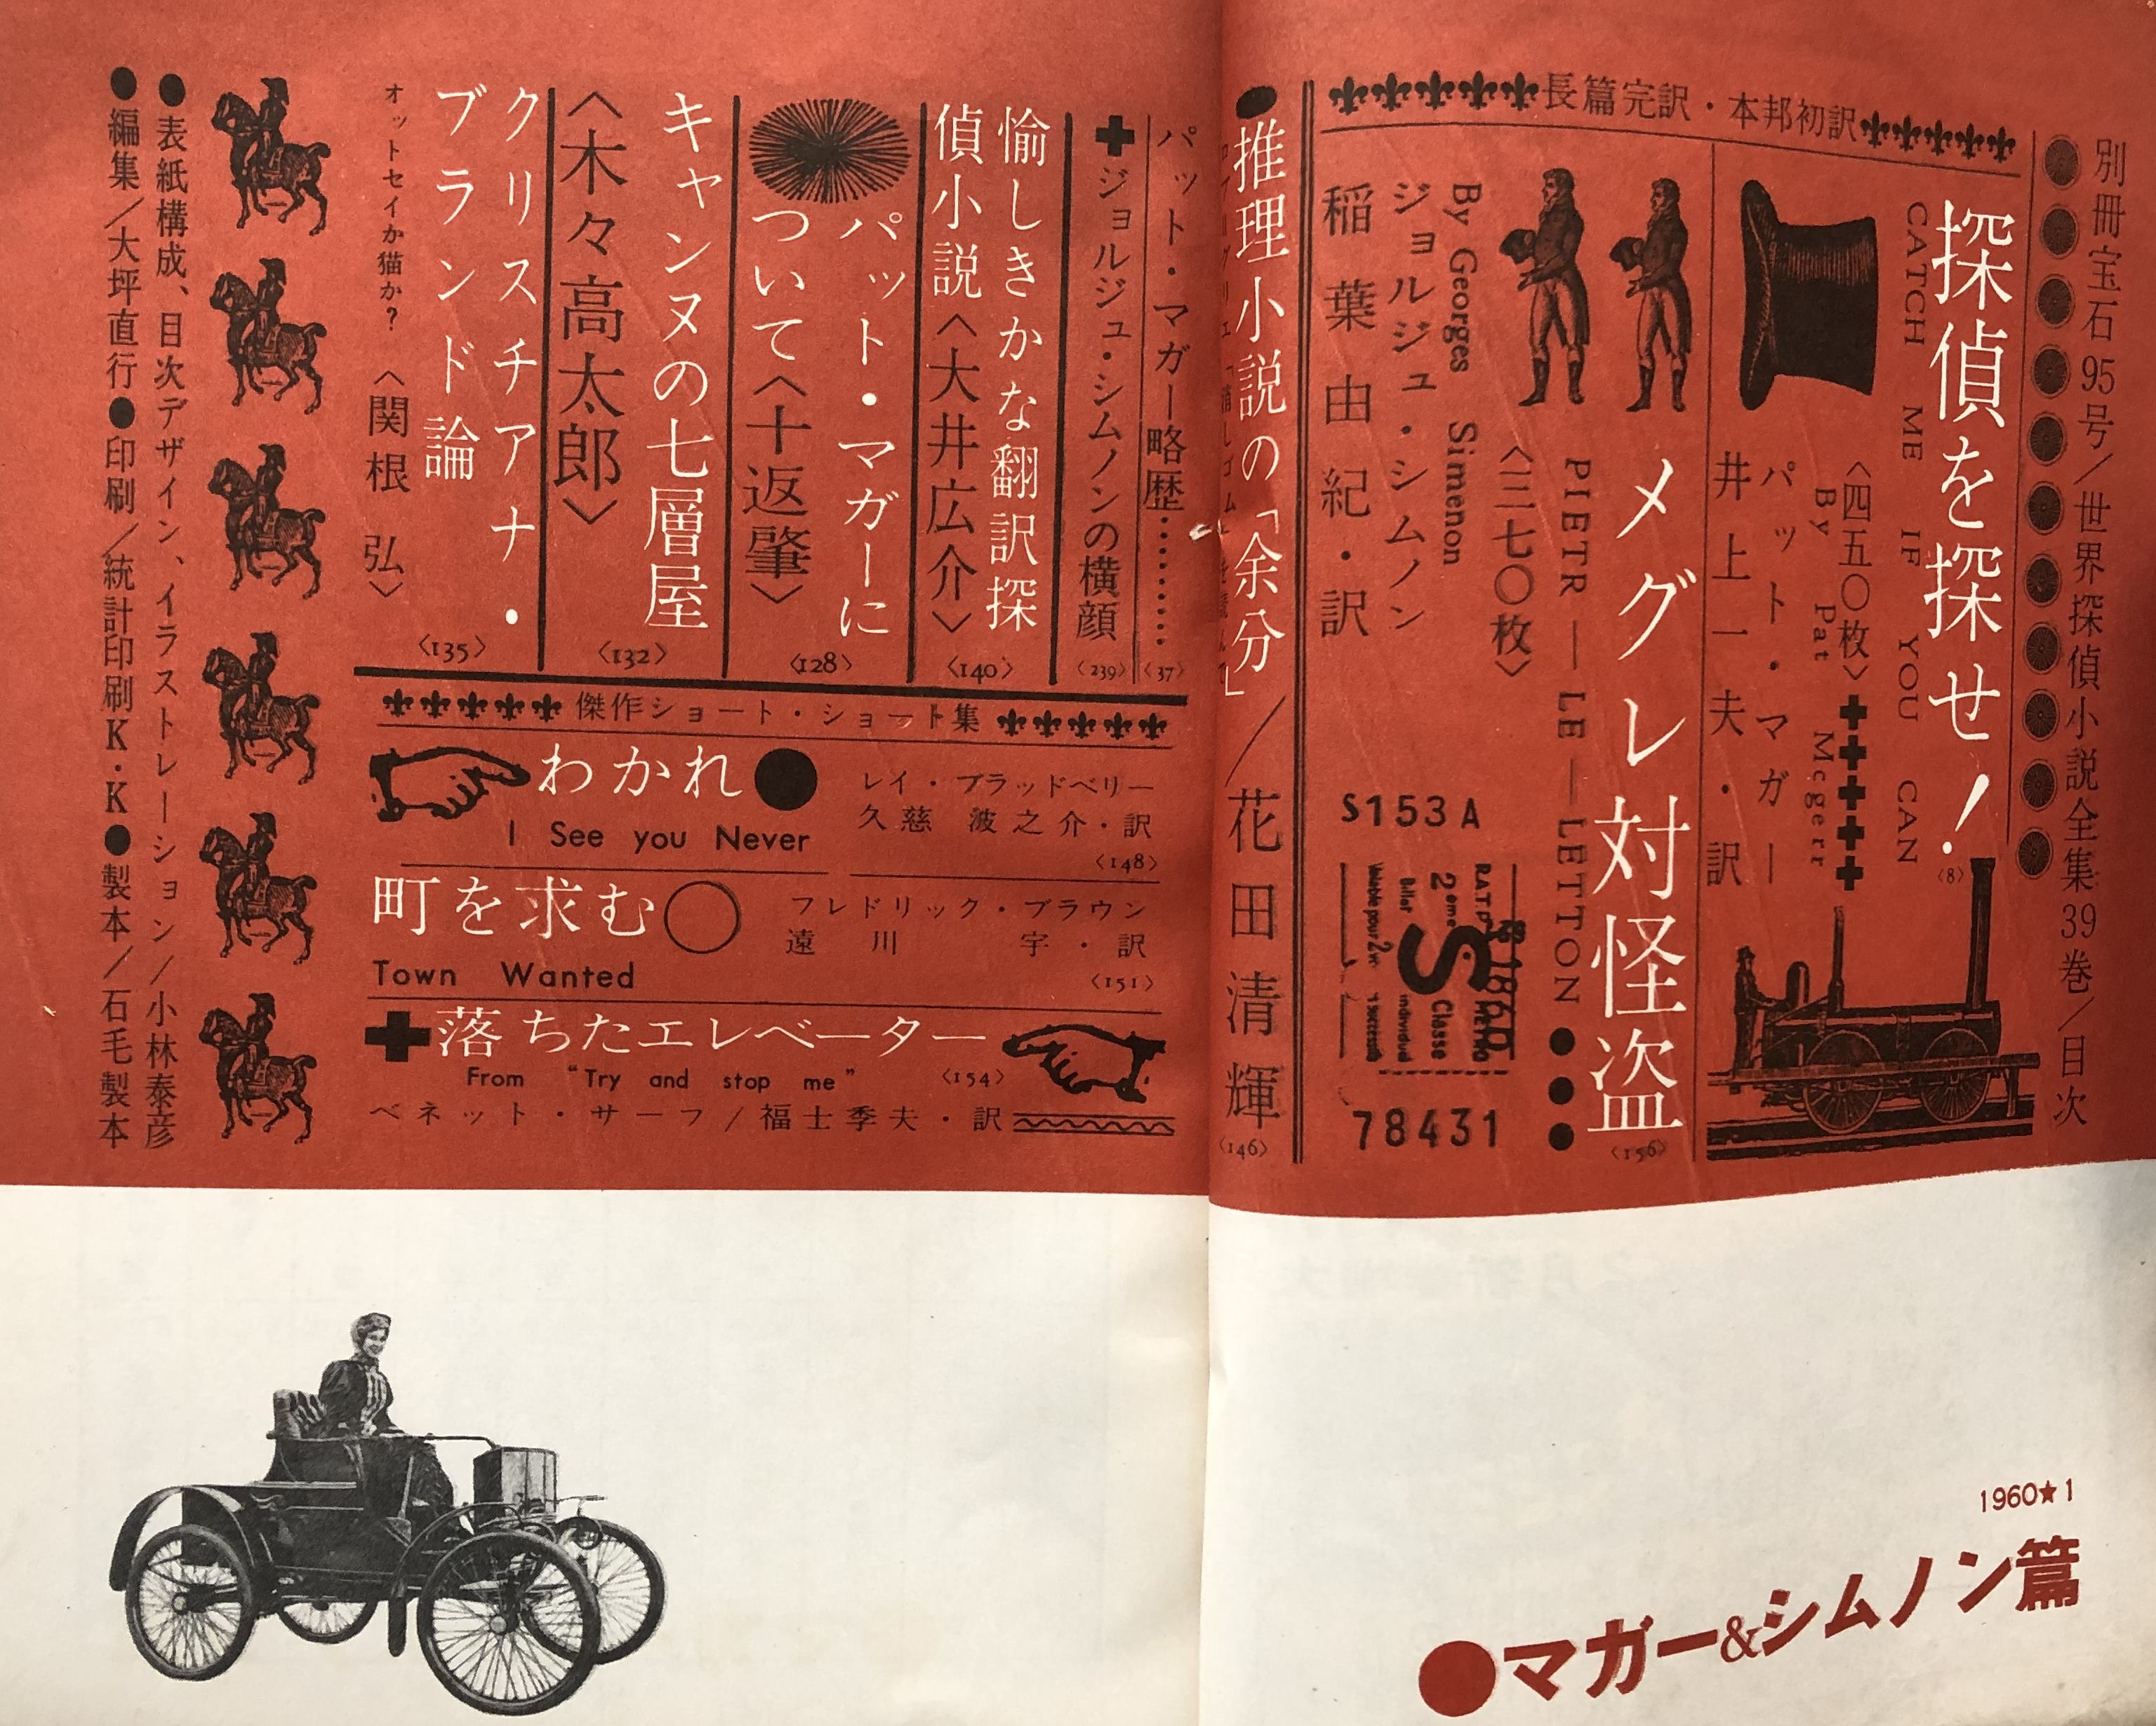 別冊宝石95号/世界探偵小説全集39巻/目次
長篇完訳・本邦初訳
探偵を探せ!
〈8〉
CATCH ME IF YOU CAN
〈四五〇枚〉
By Pat Mcgerr
パット・マガー
井上一夫・訳
メグレ対怪盗
〈156〉
PIETR — LE — LETTON
〈三七〇枚〉
By Georges Simenon
ジョルジュ・シムノン
稲葉由紀・訳
S153A
2eme Classe
S
78431
推理小説の「余分」/花田清輝
〈146〉
パット・マガー略歴………
〈37〉
ジョルジュ・シムノンの横顔
〈239〉
愉しきかな翻訳探
偵小説〈大井広介〉
〈140〉
パット・マガーに
ついて〈十返肇〉
〈128〉
キャンヌの七層屋
〈木々高太郎〉
〈132〉
クリスチアナ・
ブランド論
〈135〉
オットセイか猫か?〈関根弘〉
傑作ショート・ショート集
わかれ
I See you Never
レイ・ブラッドベリー
久慈波之介・訳
〈148〉
町を求む
Town Wanted
フレドリック・ブラウン
遠川宇・訳
〈151〉
落ちたエレベーター
From “Try and stop me” 〈154〉
ベネット・サーフ/福士季夫・訳
●表紙構成、目次デザイン、イラストレーション/小林泰彦
●編集/大坪直行●印刷/統計印刷K・K●製本/石毛製本
1960★1
●マガー&シムノン篇